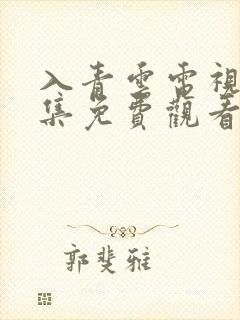 入青雲電視
集免費觀看
郭斐雅